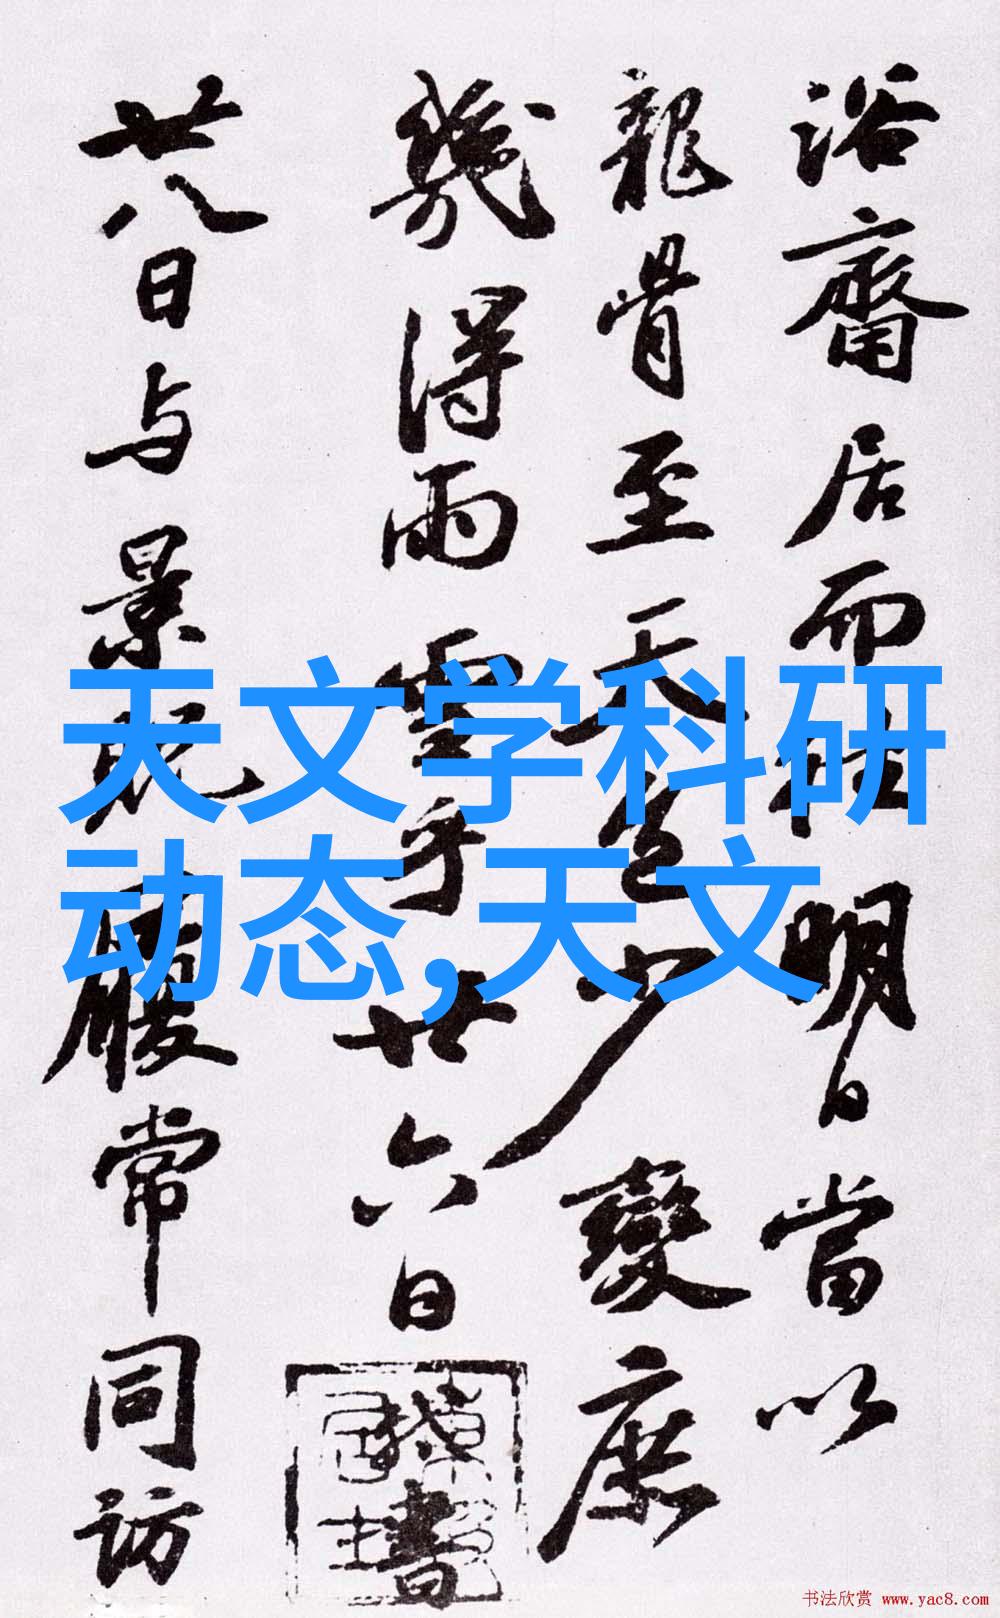 天文学科研
动态,天文
浴齋居而往明日當以
龍骨至天色少變庶
幾得雨雪乎廿六日書
廿八日与景貺履常同訪
书法欣赏 www.yac8.com